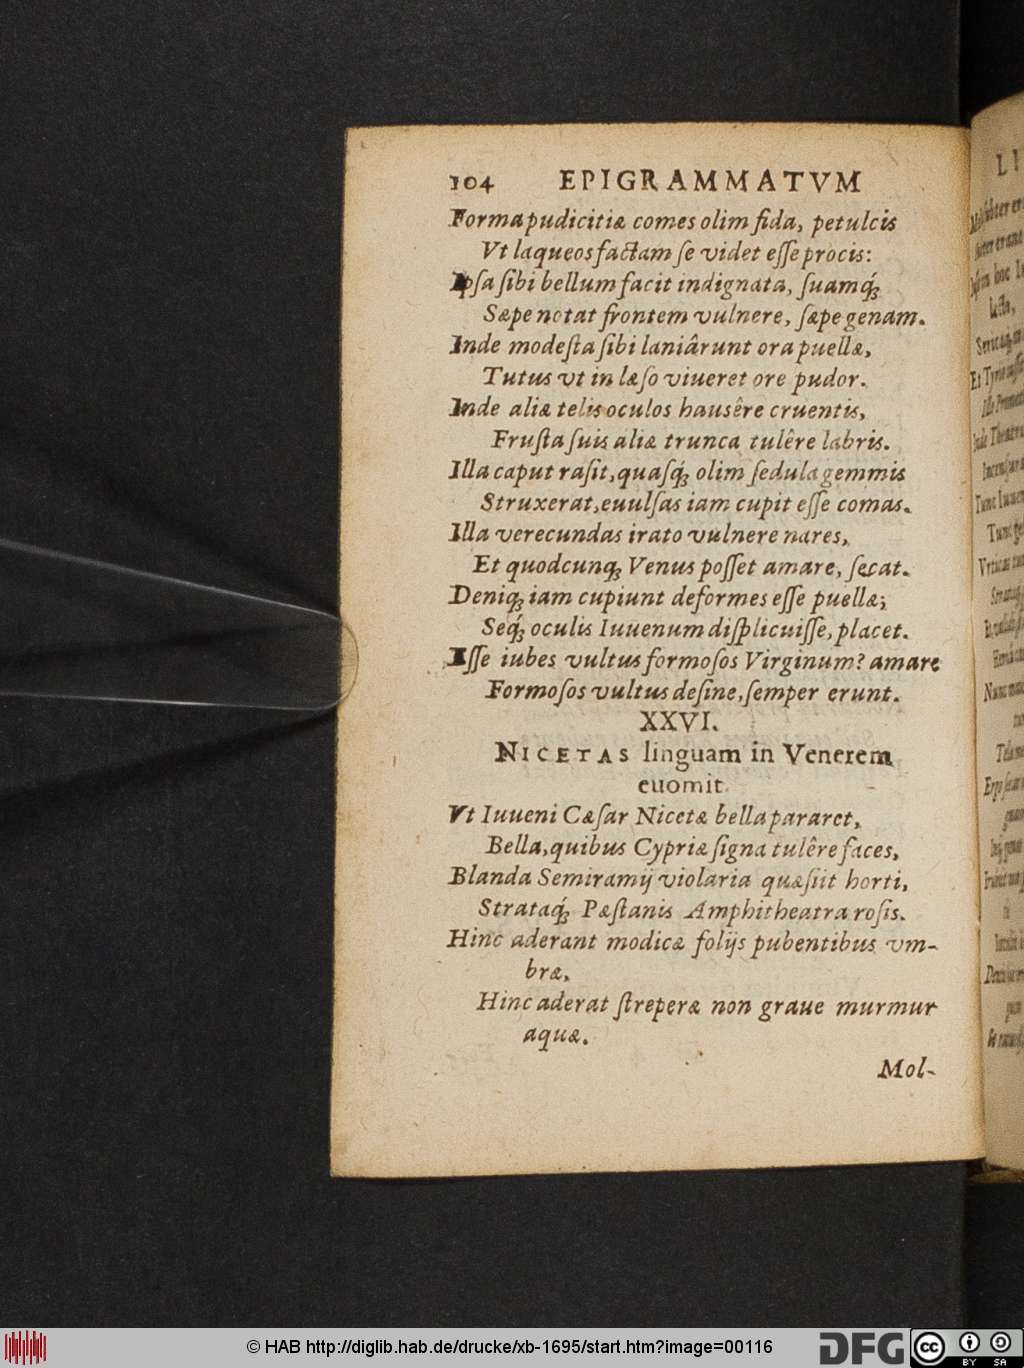 104 EPIGRAMMATVM
Forma pudicitiæ comes olim fida, petulcis
Vt laqueos factam ſe videt eſſe procis:
Ipſa ſibi bellum facit indignata, ſuamq́;
Sæpe notat frontem vulnere, ſæpe genam.
Inde modeſta ſibi laniârunt ora puellæ,
Tutus vt in læſo viueret ore pudor.
Inde aliæ telis oculos hausêre cruentis,
Fruſta ſuis aliæ trunca tulêre labris.
Illa caput raſit, quaſq́; olim ſedula gemmis
Struxerat, euulſas iam cupit eſſe comas.
Illa verecundas irato vulnere nares,
Et quodcunq; Venus poſſet amare, ſecat.
Deniq; iam cupiunt deformes eſſe puellæ;
Seq́; oculis Iuuenum diſplicuiſſe, placet.
Eſſe iubes vultus formoſos Virginum? amare
Formoſos vultus deſine, ſemper erunt.
XXVI.
NICETAS linguam in Venerem
euomit.
Vt Iuueni Cæſar Nicetæ bella pararet,
Bella, quibus Cypriæ ſigna tulêre faces,
Blanda Semiramij violaria quæſiit horti,
Strataq́; Pæſtanis Amphitheatra roſis.
Hinc aderant modicæ folijs pubentibus vm-
bræ,
Hinc aderat ſtreperæ non graue murmur
aquæ.
Mol-
LI
© HAB http://diglib.hab.de/drucke/xb-1695/start.htm?image=00116
DFG
cc
BY SA